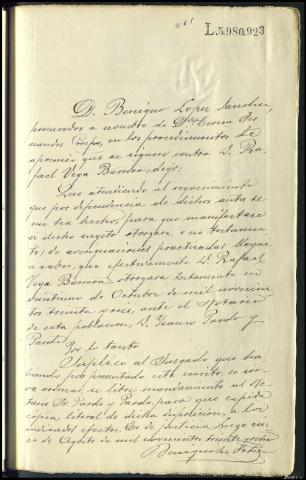 L.5.980.923
D. Benigno Lopez Sanchez,
procurador a nombre de Dª Teresa Fer
nandez Crespo, en los procedimientos de
apremio que se siguen contra D. Ra
fael Vega Barrera, digo:
Que atendiendo al requerimiento
que por dependencia de dichos autos se
me ha hecho, para que manifestase
si dicho sugeto otorgara o no testamen
to; de averiguaciones practicadas, llegué
a saber, que efectivamente D. Rafael
Vega Barrera, otorgara testamento en
veintiuno de Octubre de mil novecien
tos treinta y seis, ante el Notario
de esta poblacion, D. Isauro Pardo y
Pardo.
Por lo tanto
Suplico al Juzgado que ha
biendo por presentado este escrito, se sir
va ordenar se libre mandamiento al No
tario Sr. Pardo y Pardo para que expida
copia literal de dicha disposicion, a los
indicados efectos. Es de justicia
de Agosto de mil novecientos treinta y ocho
Benigno Lopez